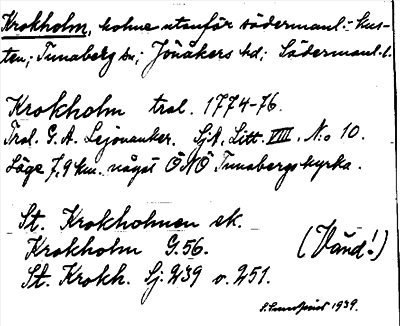 Krokholm, holme utanför södermanl:-kus-
ten; Tunaberg sn; Jönåkers hd; Södermanl. l.
Krokholm trol. 1774-76.
Trol. G. A. Lejonanker. SjA, Litt. VIII. N:o 10.
Läge 7,9 km. något ÖNÖ Tunabergs kyrka.
St. Krokholmen ek.
Krokholm G.56. (Vänd!)
St. Krokh. Sj: 239 o. 251.
1939.